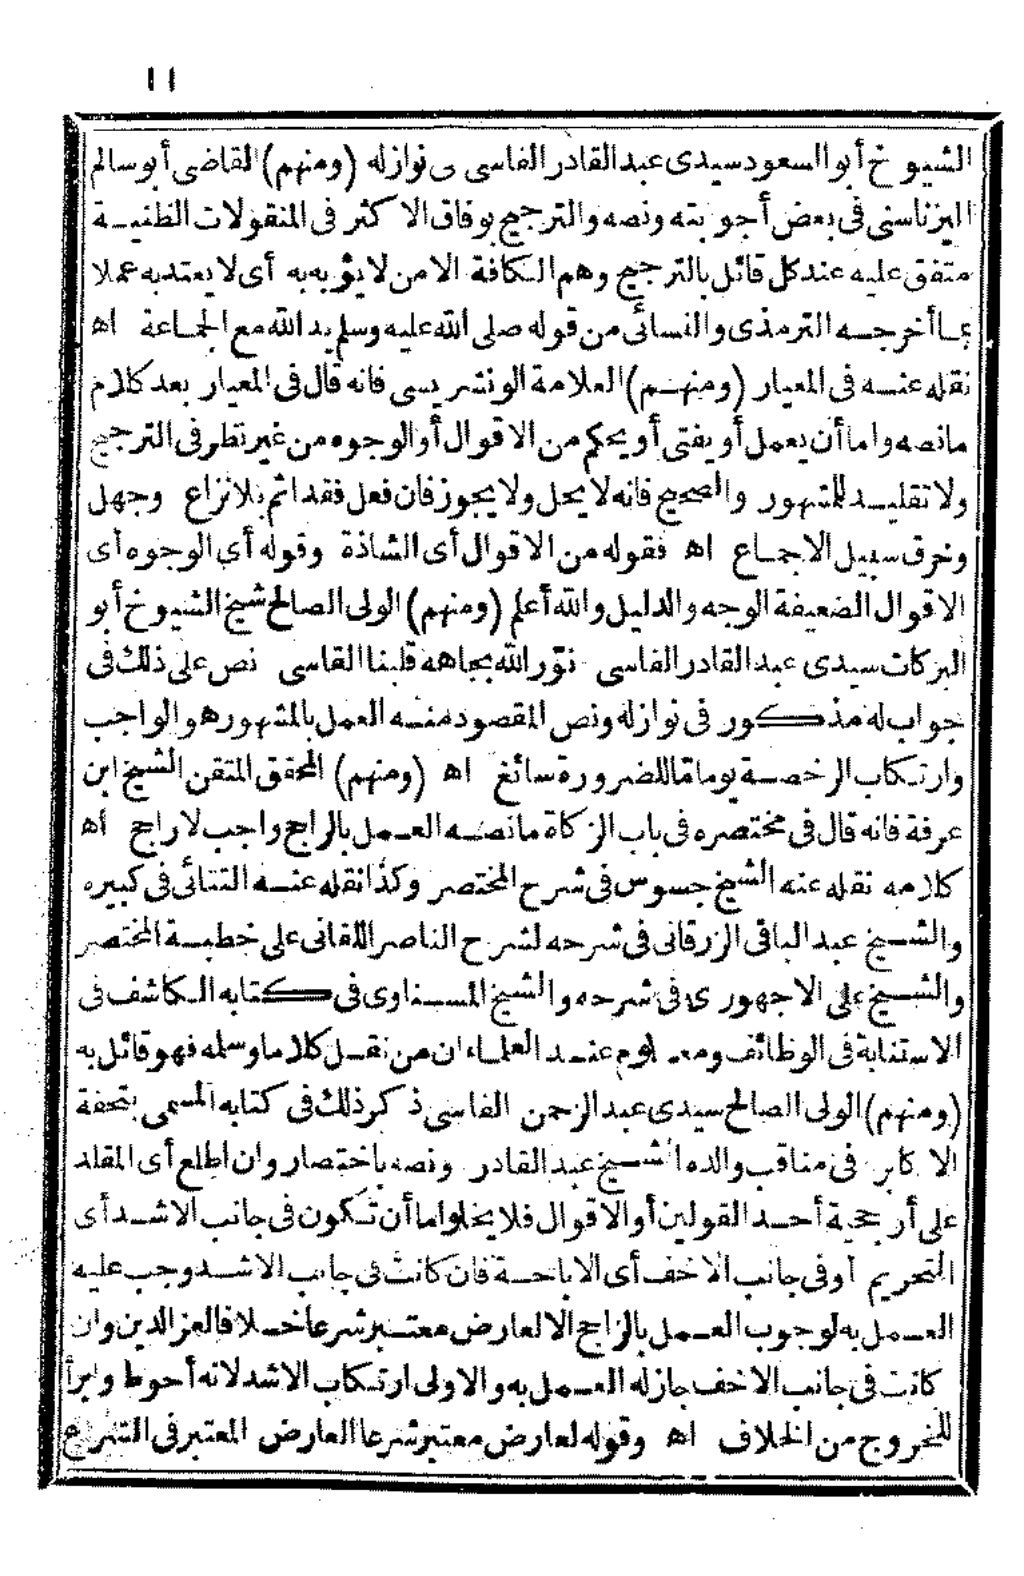 ١١
الشيوخ أبو السعود سيدى عبد القادر الفاسى فى نوازله (ومنهم) القاضى أبو سالم
اليزناسنى فى بعض أجوبته ونصه والترجيح بوفاق الاكثر فى المنقولات الظنيـة
متفق عليه عند كل قائل بالترجيح وهم الكافة الامن لايؤبه به أى لايعتد به عملا
بما أخرجه الترمذى والنسائى من قوله صلى الله عليه وسلم يد الله مع الجماعة اه
نقله عنـه فى المعيار (ومنهـم) العلامة الونشريسى فانه قال فى المعيار بعد كلام
مانصه واما أن يعمل أو يفتى أو يحكم من الاقوال أو الوجوه من غير نظر فى الترجيح
ولا تقليـد للمشهور والصحيح فانه لايحل ولا يجوز فان فعل فقد اثم بلانزاع وجهل
وخرق سبيل الاجماع اه فقوله من الاقوال أى الشاذة وقوله أى الوجوه أى
الاقوال الضعيفة الوجه والدليل والله أعلم (ومنهم) الولى الصالح شيخ الشيوخ أبو
البركات سيدى عبد القادر الفاسى نوّر الله بجاهه قلبنا القاسى نص على ذلك فى
جواب له مذكور فى نوازله ونص المقصود منـه العمل بالمشهور هو الواجب
وارتكاب الرخصـة يوماما للضرورة سائغ اه (ومنهم) المحقق المتقن الشيخ ابن
عرفة فانه قال فى مختصره فى باب الزكاة مانصـه العـمل بالراجح واجب لا راجح اه
كلامه نقله عنه الشيخ جسوس فى شرح المختصر وكذا نقله عنـه التتائى فى كبيره
والشـيخ عبد الباقى الزرقانى فى شرحه لشرح الناصر اللقانى على خطبـة المختصر
والشـيخ على الاجهورى فى شرحه والشيخ المسـناوى فى كتابه الكاشف فى
الاستنابة فى الوظائف ومعـلوم عنـد العلماء ان من نقـل كلاما وسلمه فهو قائل به
(ومنهم) الولى الصالح سيدى عبد الرحمن الفاسى ذكر ذلك فى كتابه المسمى بتحفة
الاكابر فى مناقب والده الشـيخ عبد القادر ونصه باختصار وان اطلع أى المقلد
على أرجحية أحـد القولين أو الاقوال فلا يخلو اما أن تكون فى جانب الاشـد أى
التحريم أو فى جانب الاخف أى الاباحـة فان كانت فى جانب الاشـد وجب عليه
العـمل به لوجوب العـمل بالراجح الالعارض معتـبر شرعا خـلافا لعز الدين وان
كانت فى جانب الاخف جاز له العـمل به والاولى ارتـكاب الاشد لانه أحوط وابرأ
للخروج من الخلاف اه وقوله لعارض معتبر شرعا العارض المعتبر فى الشرع